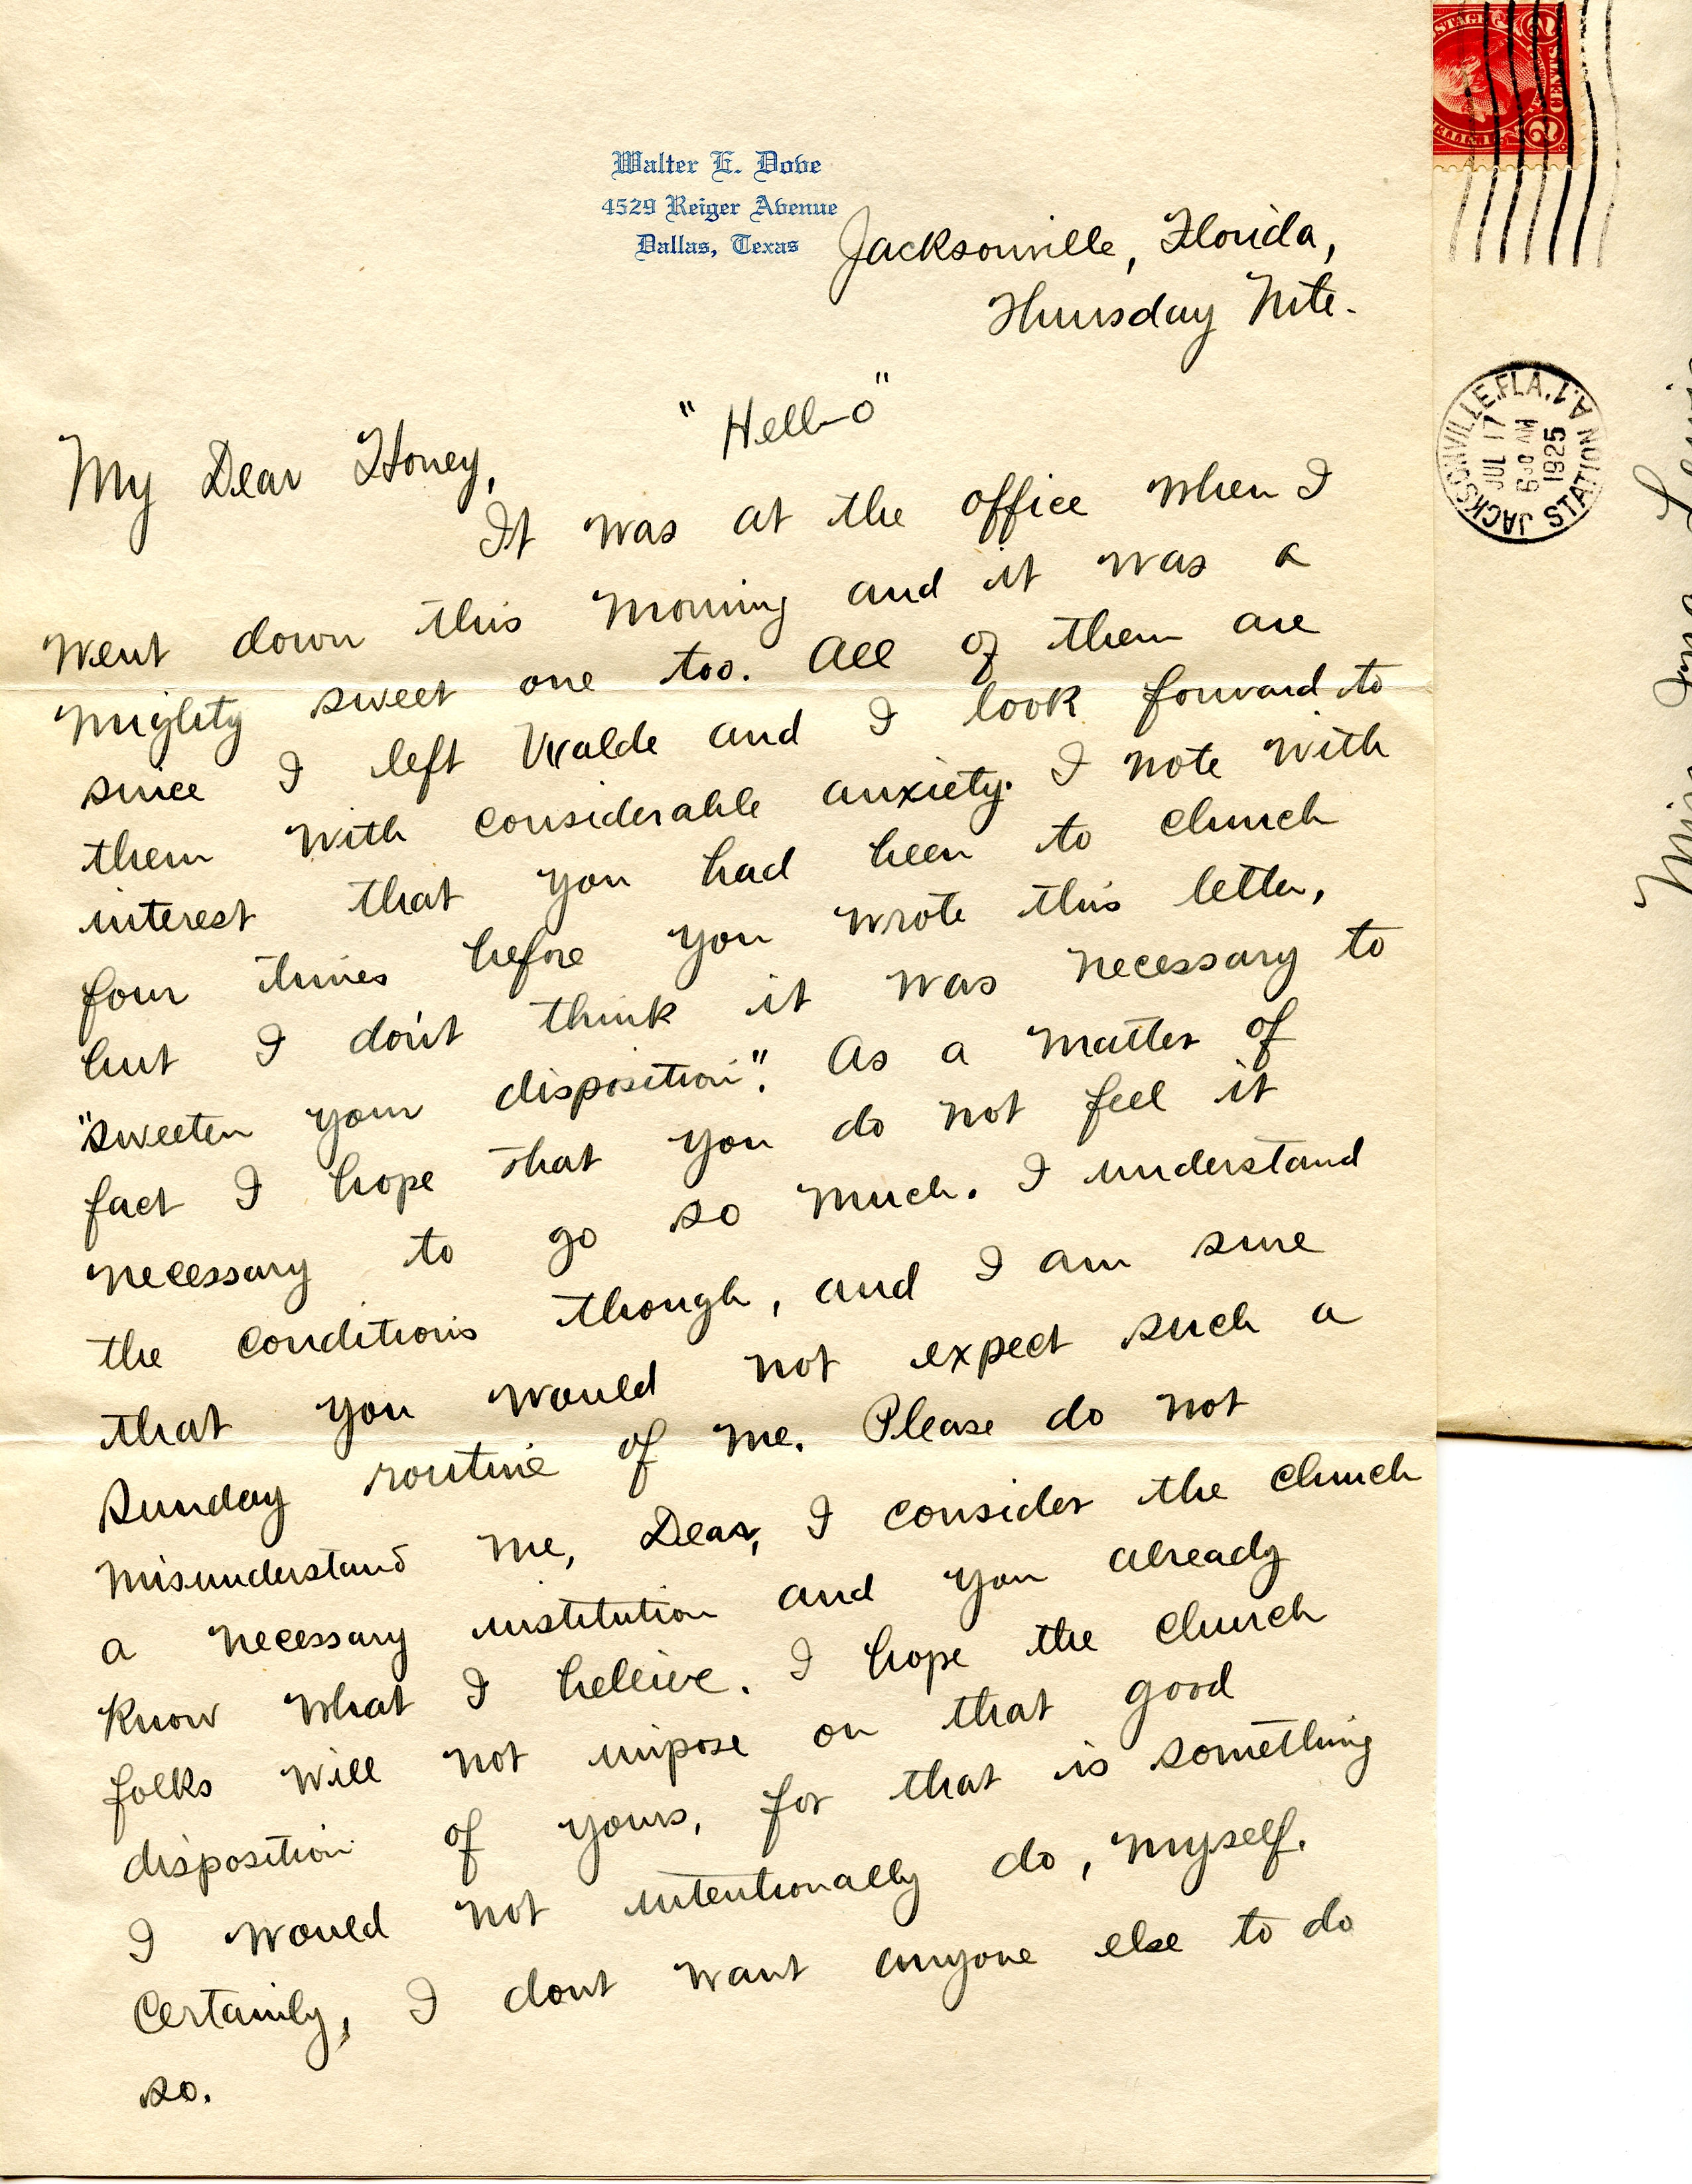 Walter E. Dove
4529 Reiger Avenue
Dallas, Texas
Jacksonville, Florida,
Thursday Nite.
"Hell-o"
My Dear Honey,
It was at the office when I
went down this morning and it was a
mighty sweet one too. All of them are
since I left Uvalde and I look forward to
them with considerable anxiety. I note with
interest that you had been to church
four times before you wrote this letter,
but I don't think it was necessary to
"sweeten your disposition". As a matter of
fact I hope that you do not feel it
necessary to go so much. I understand
the conditions though, and I am sure
that you would not expect such a
Sunday routine of me. Please do not
misunderstand me, Dear, I consider the church
a necessary institution and you already
know what I believe. I hope the church
folks will not impose on that good
disposition of yours, for that is something
I would not intentionally do, myself.
Certainly, I dont want anyone else to do
so.
POSTAGE
2 CENTS 2
JACKSONVILLE, FLA. 1.
STATION A
JUL 17
630 AM
1925
Miss